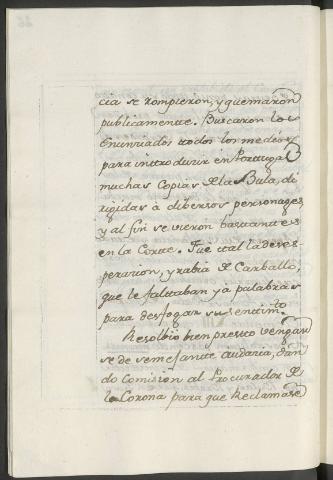 cia se rompieron, y quemaron
publicamente. Buscaron los
enunciados todos los medios
para introducir en Portugal
muchas Copias de la Bula, di
rigidas à dibersos personages
y al fin se vieron bastantes
en la Corte. Fue tal la deses
peracion, y rabia de Carballo,
que le faltaban ya palabras
para desfogar su sentimto.
Resolbio bien presto vengar
se de semejante audacia, dan
do Comision al Procurador de
la Corona para que Reclamase